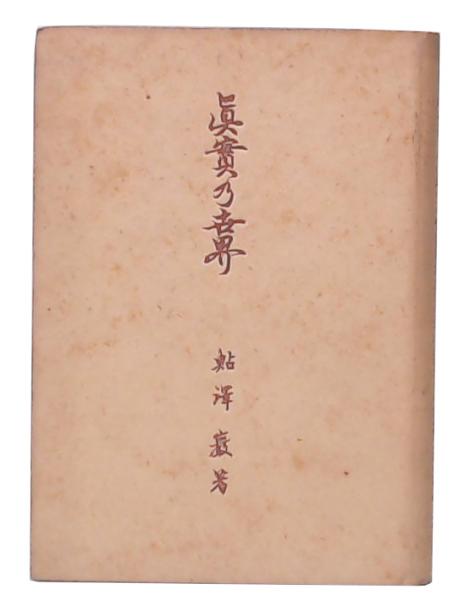 眞實乃世界
鮎澤巌著